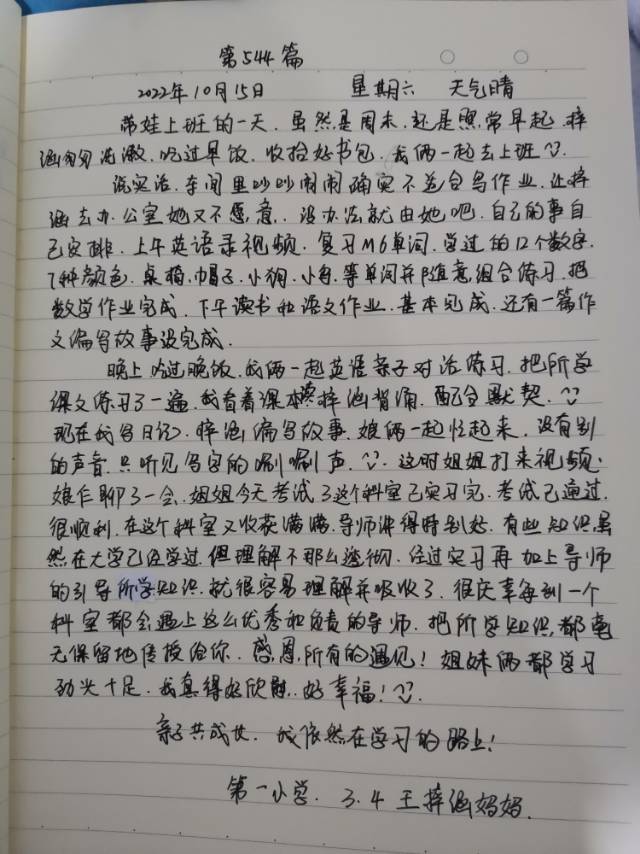 第544篇
2022年10月15日 星期六 天气晴
带娃上班的一天. 虽然是周末. 还是照常早起. 梓
涵匆匆洗漱. 吃过早饭. 收拾好书包. 我俩一起去上班
说实话. 车间里吵吵闹闹确实不益合写作业. 让梓
涵去办公室她又不愿意. 没办法就由她吧. 自己的事自
己安排. 上午英语录视频. 复习M6单词. 学过的12个数字.
7种颜色. 桌椅. 帽子. 小狗. 小鸟. 等单词并随意组合练习. 把
数学作业完成. 下午读书和语文作业. 基本完成. 还有一篇作
文编写故事没完成.
晚上吃过晚饭. 我俩一起英语亲子对话练习. 把所学
课文练习了一遍. 我看着课本读梓涵背诵. 配合默契.
现在我写日记. 梓涵编写故事. 娘俩一起忙起来. 没有别
的声音. 只听见写字的唰唰声. 这时姐姐打来视频.
娘仨聊了一会. 姐姐今天考试了这个科室已实习完. 考试已通过.
很顺利. 在这个科室又收获满满. 导师讲得特别好. 有些知识虽
然在大学已经学过. 但理解不那么透彻. 经过实习再加上导师
的引导所学知识. 就很容易理解并吸收了. 很庆幸每到一个
科室都会遇上这么优秀和负责的导师. 把所学知识都毫
无保留地传授给你. 感恩所有的遇见! 姐妹俩都学习
劲头十足. 我真得好欣慰. 好幸福!
亲子共成长. 我依然在学习的路上!
第一小学. 3.4 王梓涵妈妈.